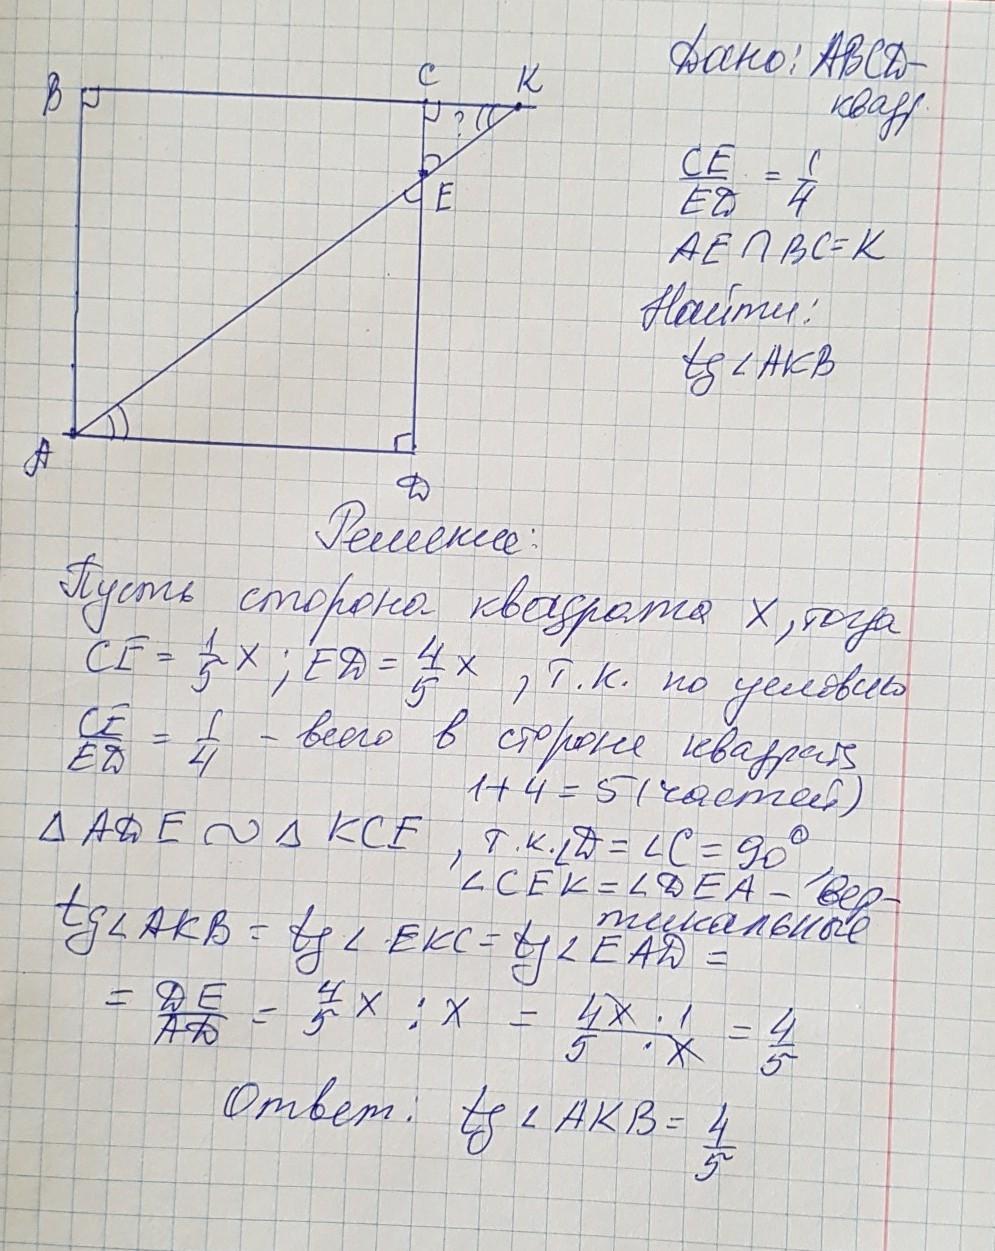 B
C
K
?
E
A
D
Дано: ABCD-
квадр.
CE/ED = 1/4
AE ∩ BC = K
Найти:
tg ∠ AKB
Решение:
Пусть сторона квадрата x, тогда
CE = 1/5 x ; ED = 4/5 x , т.к. по условию
CE/ED = 1/4 - всего в стороне квадрата
1+4=5 (частей)
Δ ADE ∾ Δ KCE , т.к. ∠D = ∠C = 90°
∠CEK = ∠DEA - вер-
тикальные
tg ∠ AKB = tg ∠ EKC = tg ∠ EAD =
= DE/AD = 4/5 x : x = 4x · 1 / 5 · x = 4/5
Ответ: tg ∠ AKB = 4/5